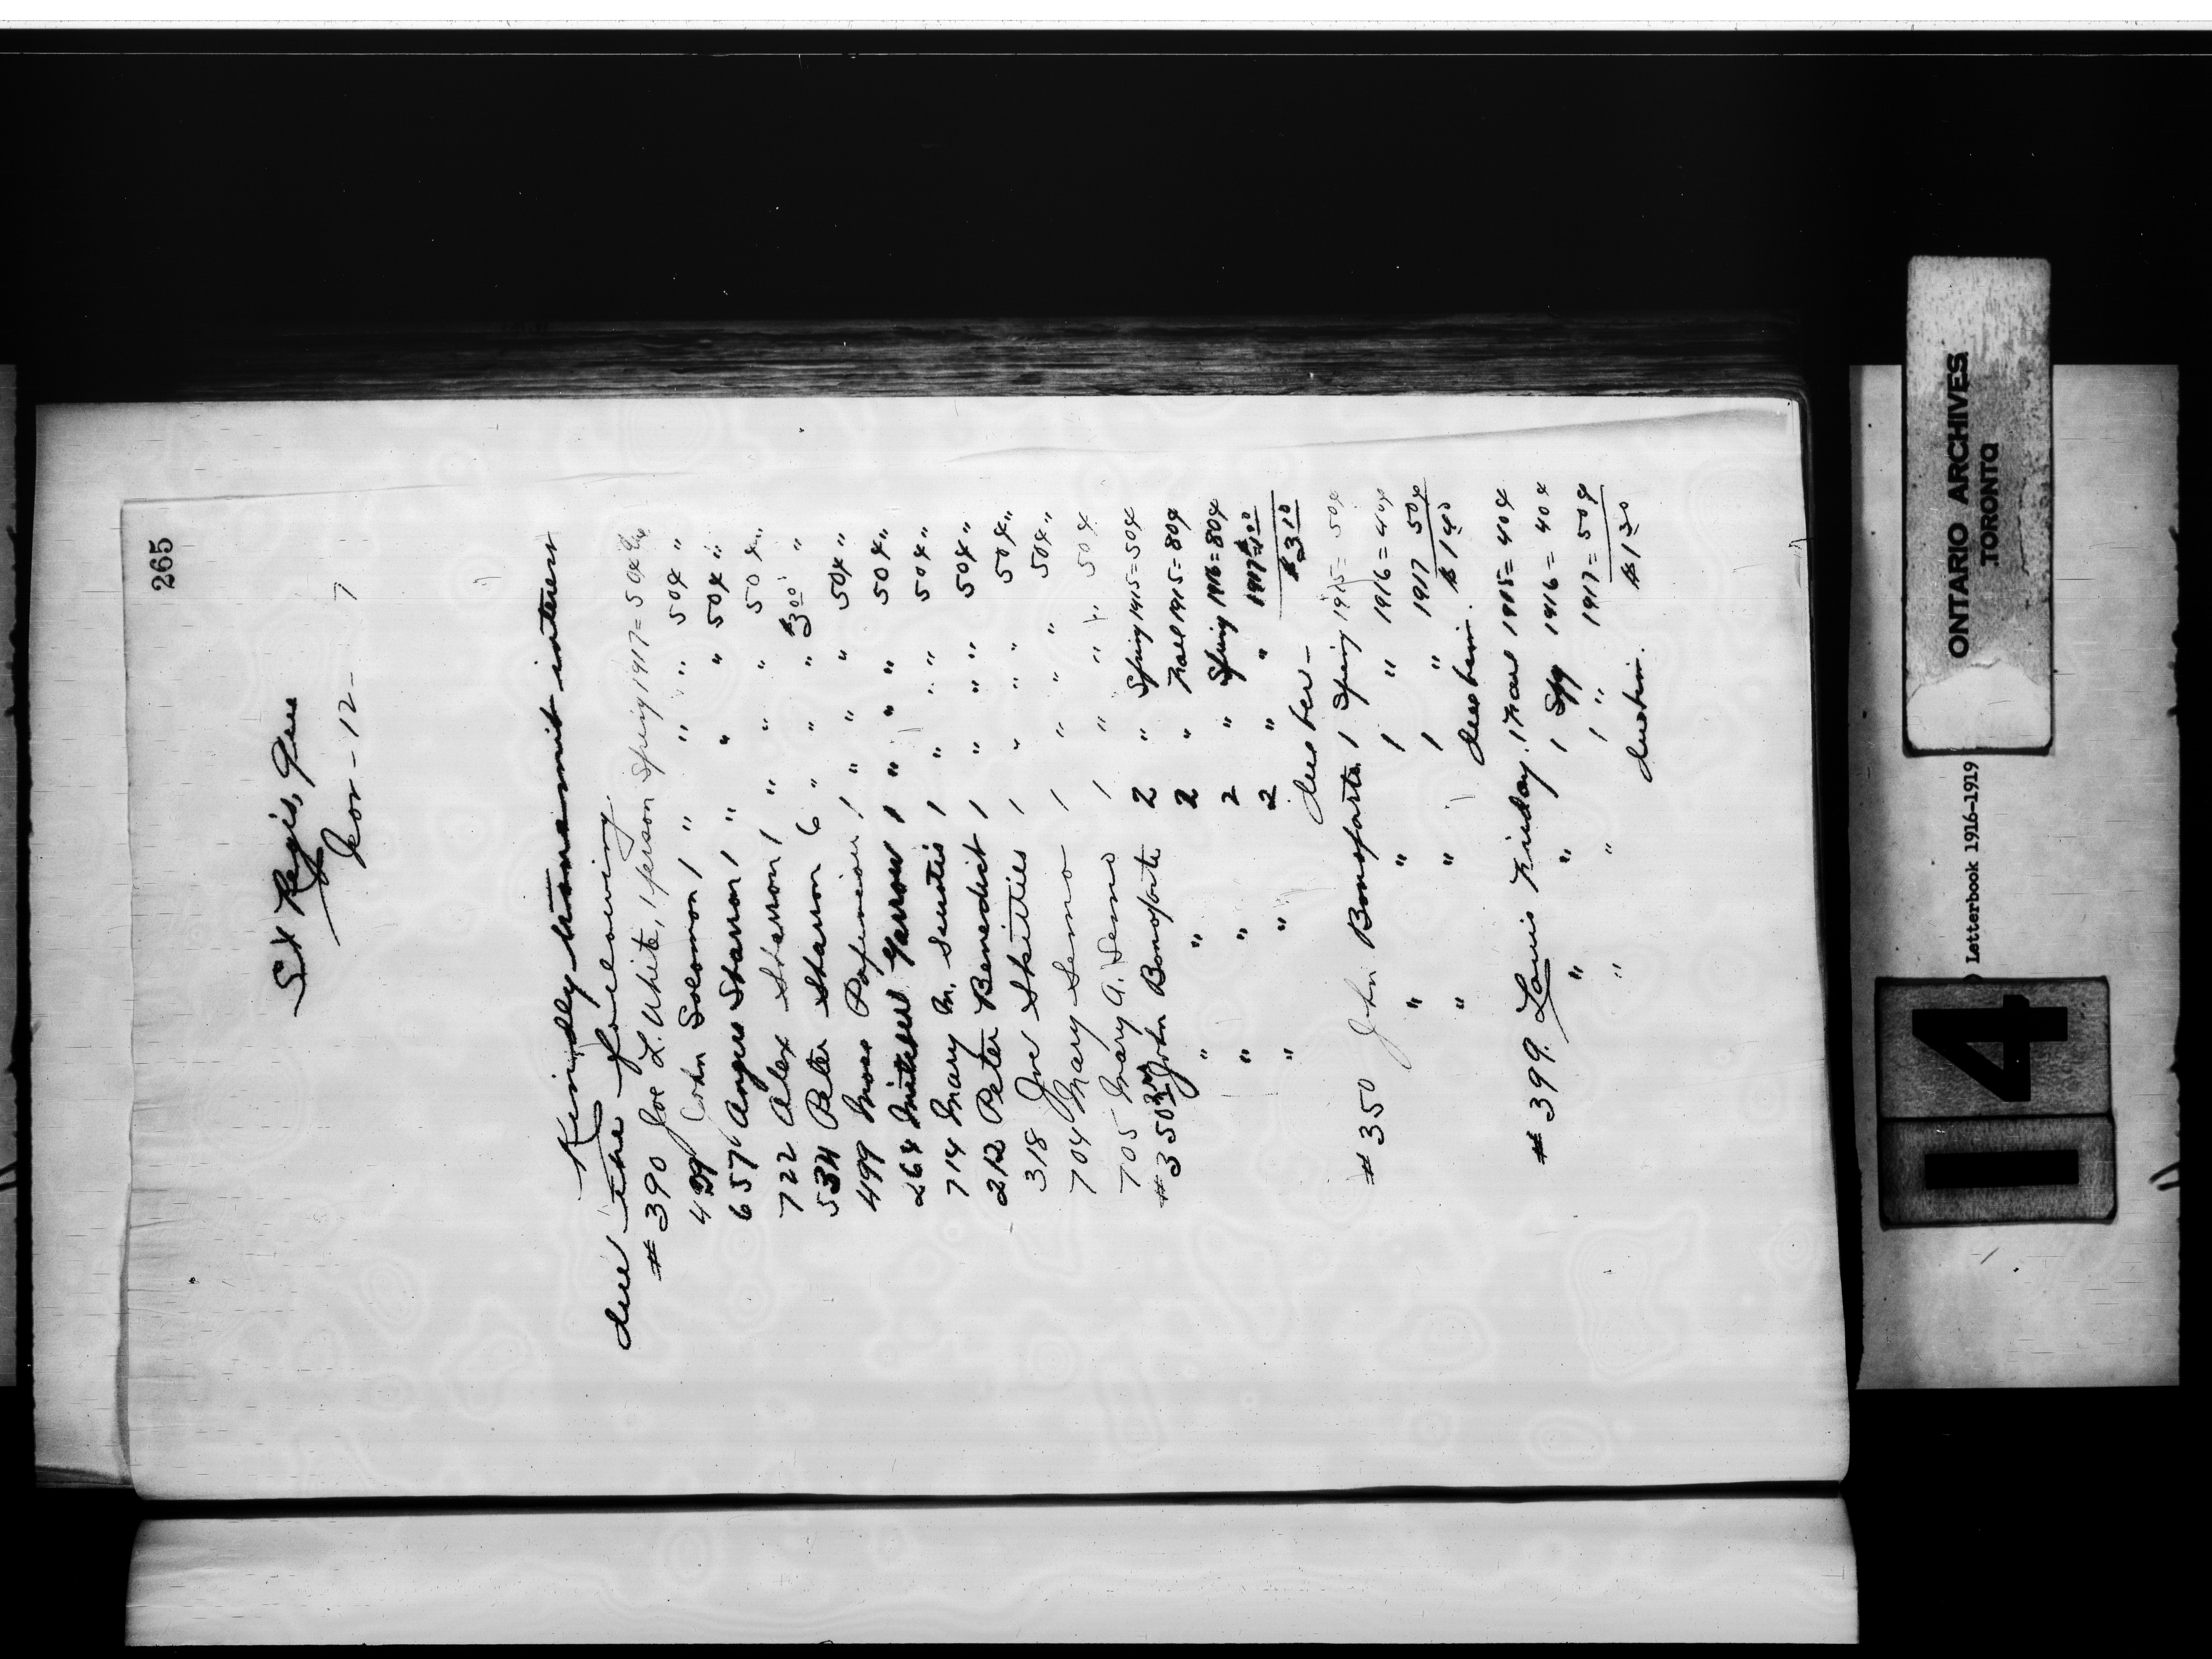 265
St Regis, Que
Nov - 12 - 7
Kindly transmit interest
due the following.
# 390 Joe L. White, 1 person Spring 1917 = 50¢ due
439 John Solomon 1 " " " 50¢ "
657 Angus Sharron 1 " " " 50¢ "
722 Alex Sharron 1 " " " 50¢ "
534 Peter Sharron 6 " " " $3.00 "
499 Moses Papineau 1 " " " 50¢ "
264 Mitchell Garrow 1 " " " 50¢ "
714 Mary M. 1 " " " 50¢ "
212 Peter Benedict 1 " " " 50¢ "
318 Joe Skitties 1 " " " 50¢ "
704 Mary Seno 1 " " " 50¢ "
705 Mary A. Seno 1 " " " 50¢
# 350 John Bonoparte 2 " Spring 1915 = 50¢
" " 2 " Fall 1915 = 80¢
" " 2 " Spring 1916 = 80¢
" " 2 " " 1917 = $1.00
due her - $3.10
# 350 John Bonoparte 1 Spring 1915 = 50¢
" " 1 " 1916 = 40¢
" " 1 " 1917 50¢
due him. $1.40
# 399. Louis Friday. 1 Fall 1915 = 40¢
" " 1 Spg 1916 = 40¢
" " 1 " 1917 = 50¢
due him. $1.30
ONTARIO ARCHIVES
TORONTO
Letterbook 1916-1919
14